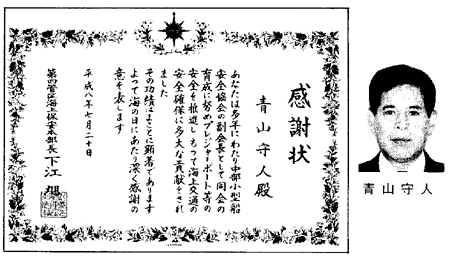 感謝状
青山守人殿
あなたは多年にわたり中部小型船
安全協会の副会長として同会の
育成に努めプレジャーボート等の
安全を推進しもって海上交通の
安全確保に多大な貢献をされ
ました
その功績はまことに顕著であります
よって海の日にあたり深く感謝の
意を表します
平成八年七月二十日
第四管区海上保安本部長 下江
青山守人